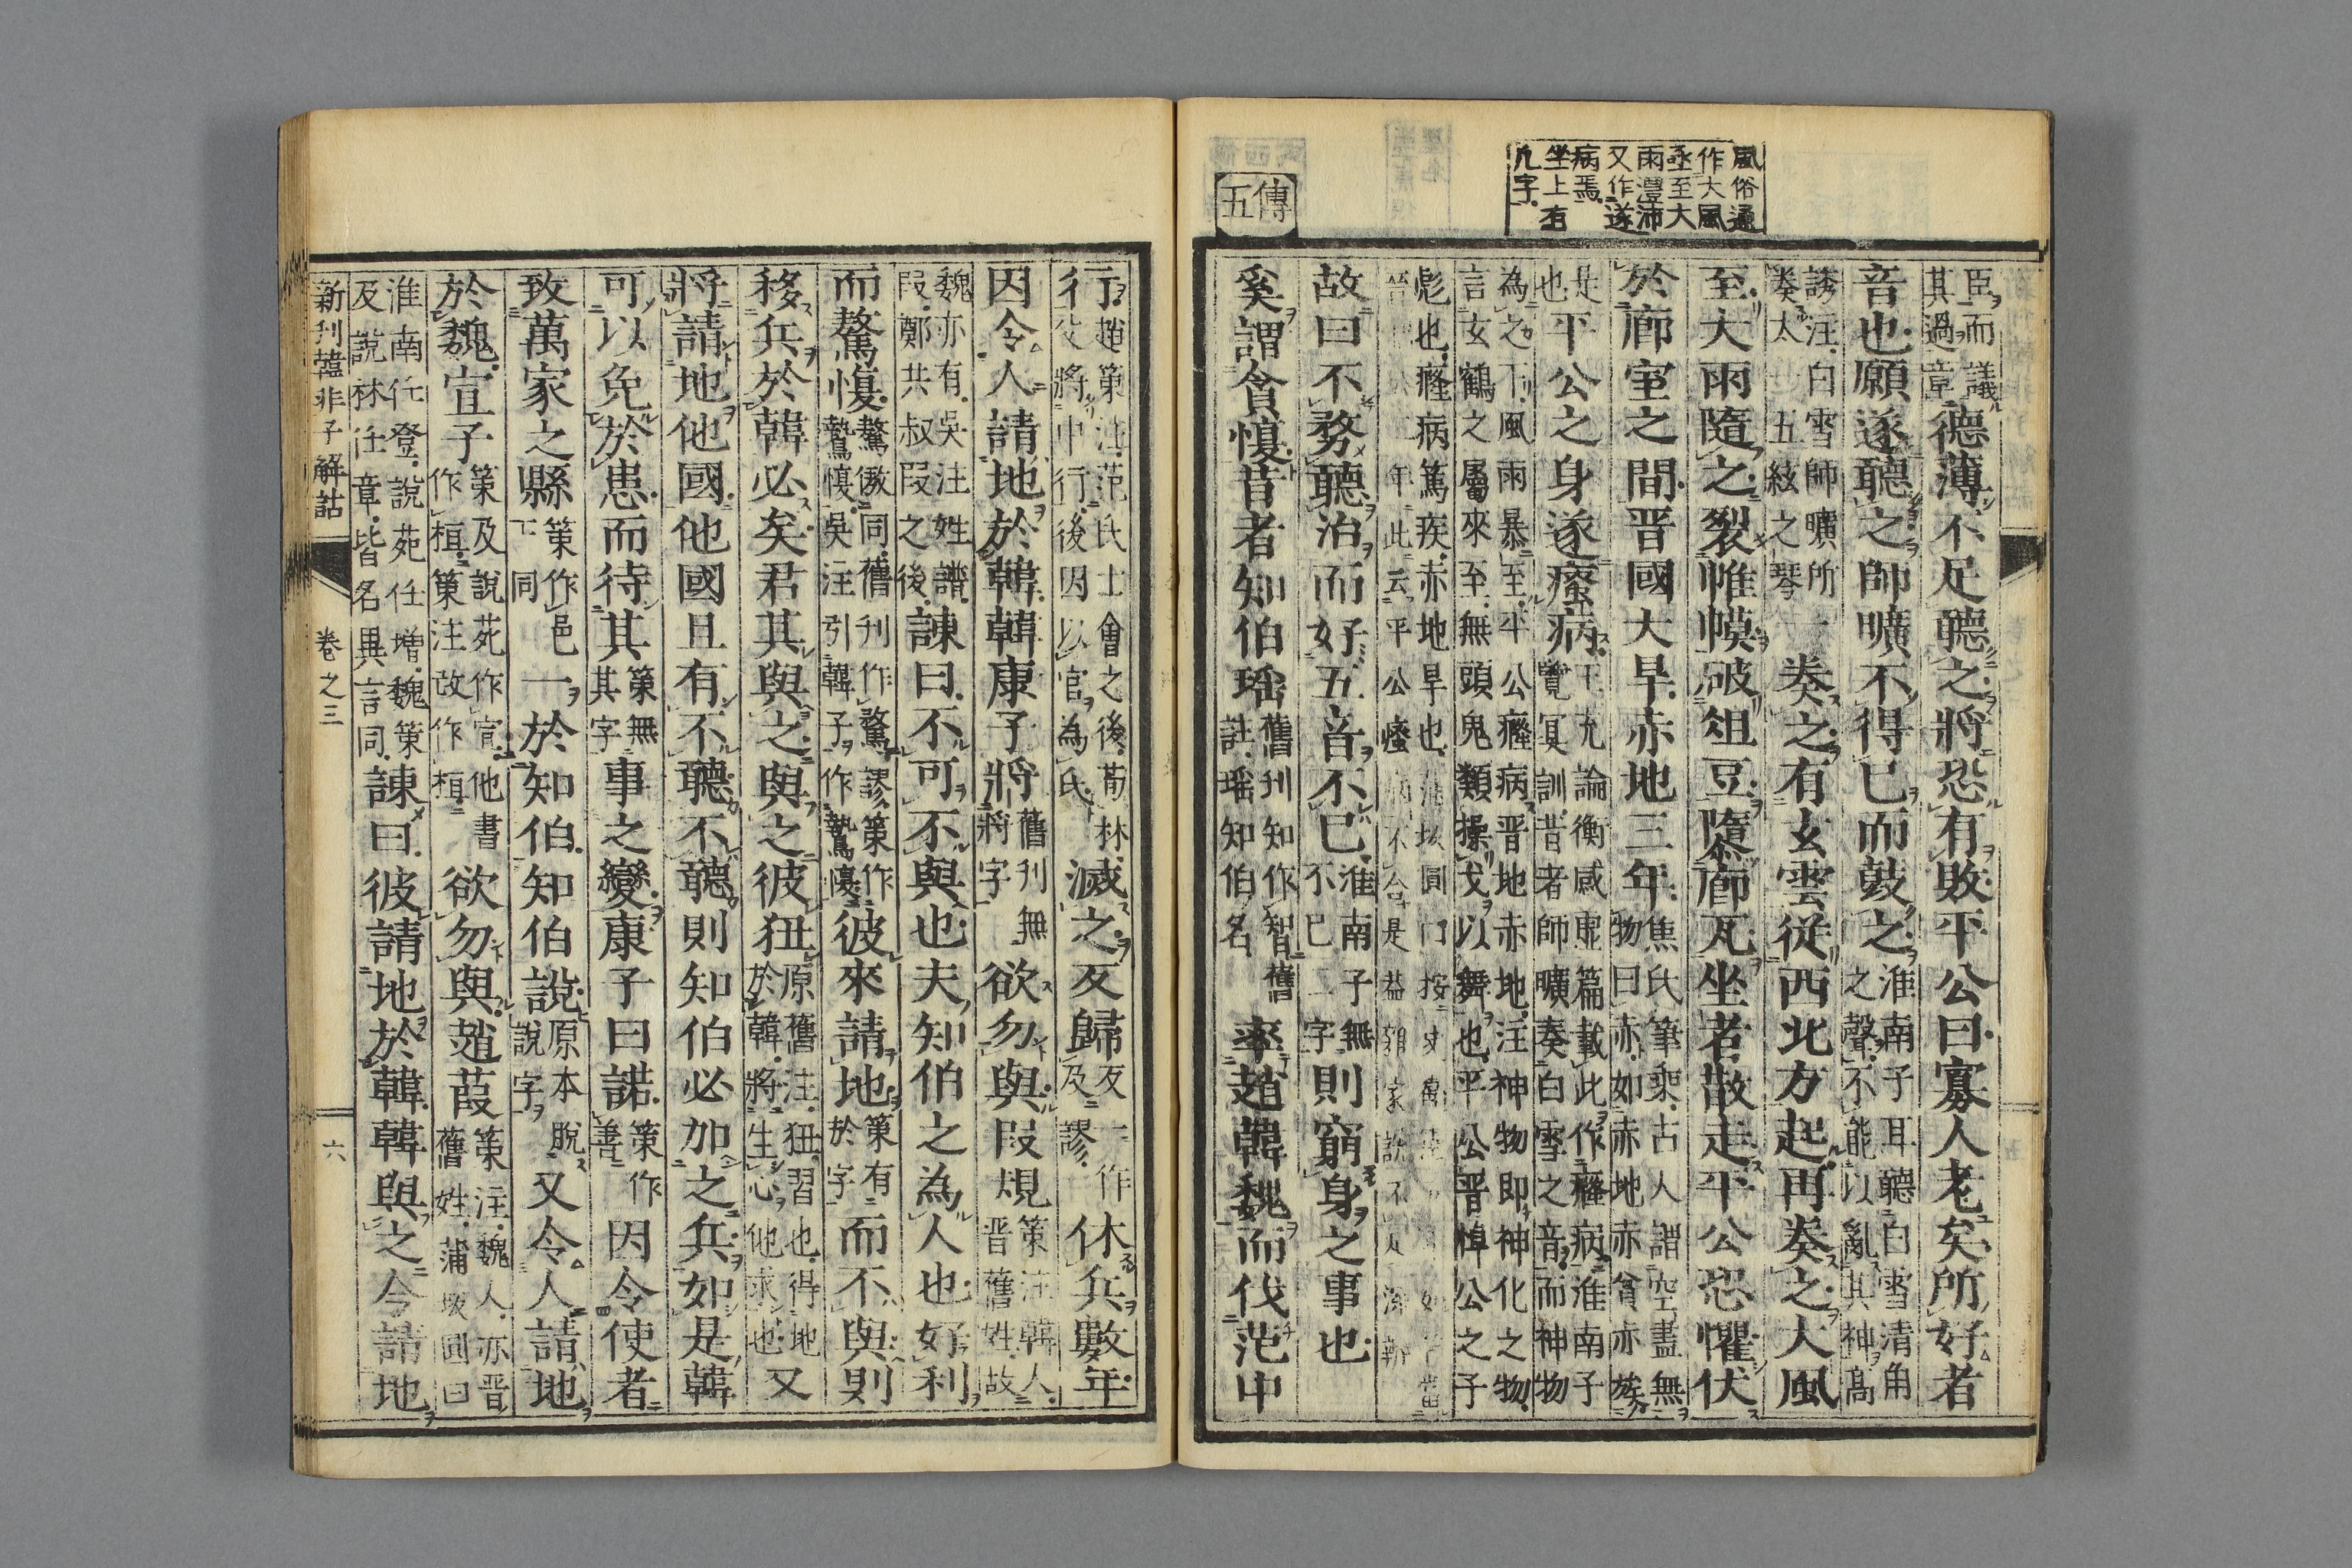 風俗通
作大風
亟至大
雨灃沛
又作遂
病焉
坐上有
凢字
傳五
臣而議其過章德薄不足聽之將恐有敗平公曰寡人老矣所好者
音也願遂聽之師曠不得已而鼓之淮南子耳聽白雪清角之聲不能以亂其神高
誘注白雪師曠所奏太五絃之琴奏之有玄雲從西北方起再奏之大風
至大雨隨之裂帷幙破俎豆隳廊瓦坐者散走平公恐懼伏
於廊室之間晋國大旱赤地三年焦氏筆乘古人謂空盡無物曰赤如赤地赤貧赤族
是也平公之身遂癃病王充論衡感虛篇載此作癃病淮南子覽冥訓昔者師曠奏白雪之音而神物
為之下風雨暴至平公癃病晋地赤地注神物即神化之物言玄鶴之屬來至無頭鬼類操戈以舞也平公晋悼公之子
彪也癃病篤疾赤地旱也
年此云平公癃病不合是益
故曰不務聽治而好五音不已淮南子無不已二字則窮身之事也
奚謂貪愎昔者知伯瑶舊刊知作智舊註瑶知伯名率趙韓魏而伐范中
行趙策注范氏士會之後荀林父將中行後因以官為氏滅之反歸反一作及謬休兵數年
因令人請地於韓韓康子將舊刊無將字欲勿與叚規策注韓人晋舊姓故
魏亦有吳注姓譜叚鄭共叔叚之後諫曰不可不與也夫知伯之為人也好利
而驁愎驁傲同舊刊作驁謬策作鷙愎吳注引韓子作鷙愎彼來請地策有於字而不與則
移兵於韓必矣君其與之與之彼狃原舊注狃習也得地於韓將生心他求也又
將請地他國他國且有不聽不聽則知伯必加之兵如是韓
可以免於患而待其策無其字事之變康子曰諾策作善因令使者
致萬家之縣策作邑下同一於知伯知伯說原本脫說字又令人請地
於魏宣子策及說苑作宣他書作桓策注改作桓欲勿與趙葭策注魏人亦晋舊姓蒲坂圓曰
淮南任登說苑任增魏策及說林任章皆名異言同諫曰彼請地於韓韓與之今請地
新刊韓非子解詁
卷之三
六